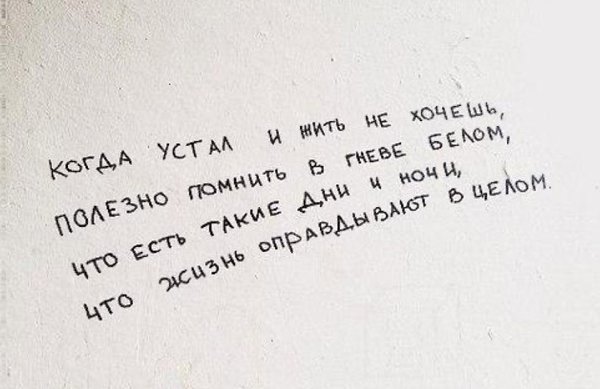 КОГДА УСТАЛ И ЖИТЬ НЕ ХОЧЕШЬ,
ПОЛЕЗНО ПОМНИТЬ В ГНЕВЕ БЕЛОМ,
ЧТО ЕСТЬ ТАКИЕ ДНИ И НОЧИ,
ЧТО ЖИЗНЬ ОПРАВДЫВАЮТ В ЦЕЛОМ.